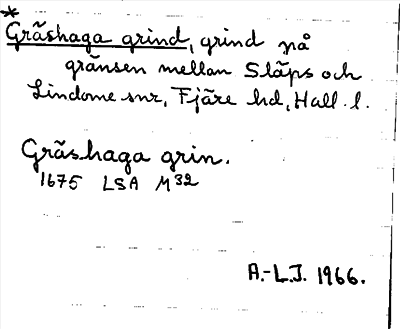 * Gråshaga grind, grind på
gränsen mellan Släps och
Lindome snr, Fjäre hd, Hall. l.
Gråshaga grin.
1675 LSA M32
A.-L.J. 1966.